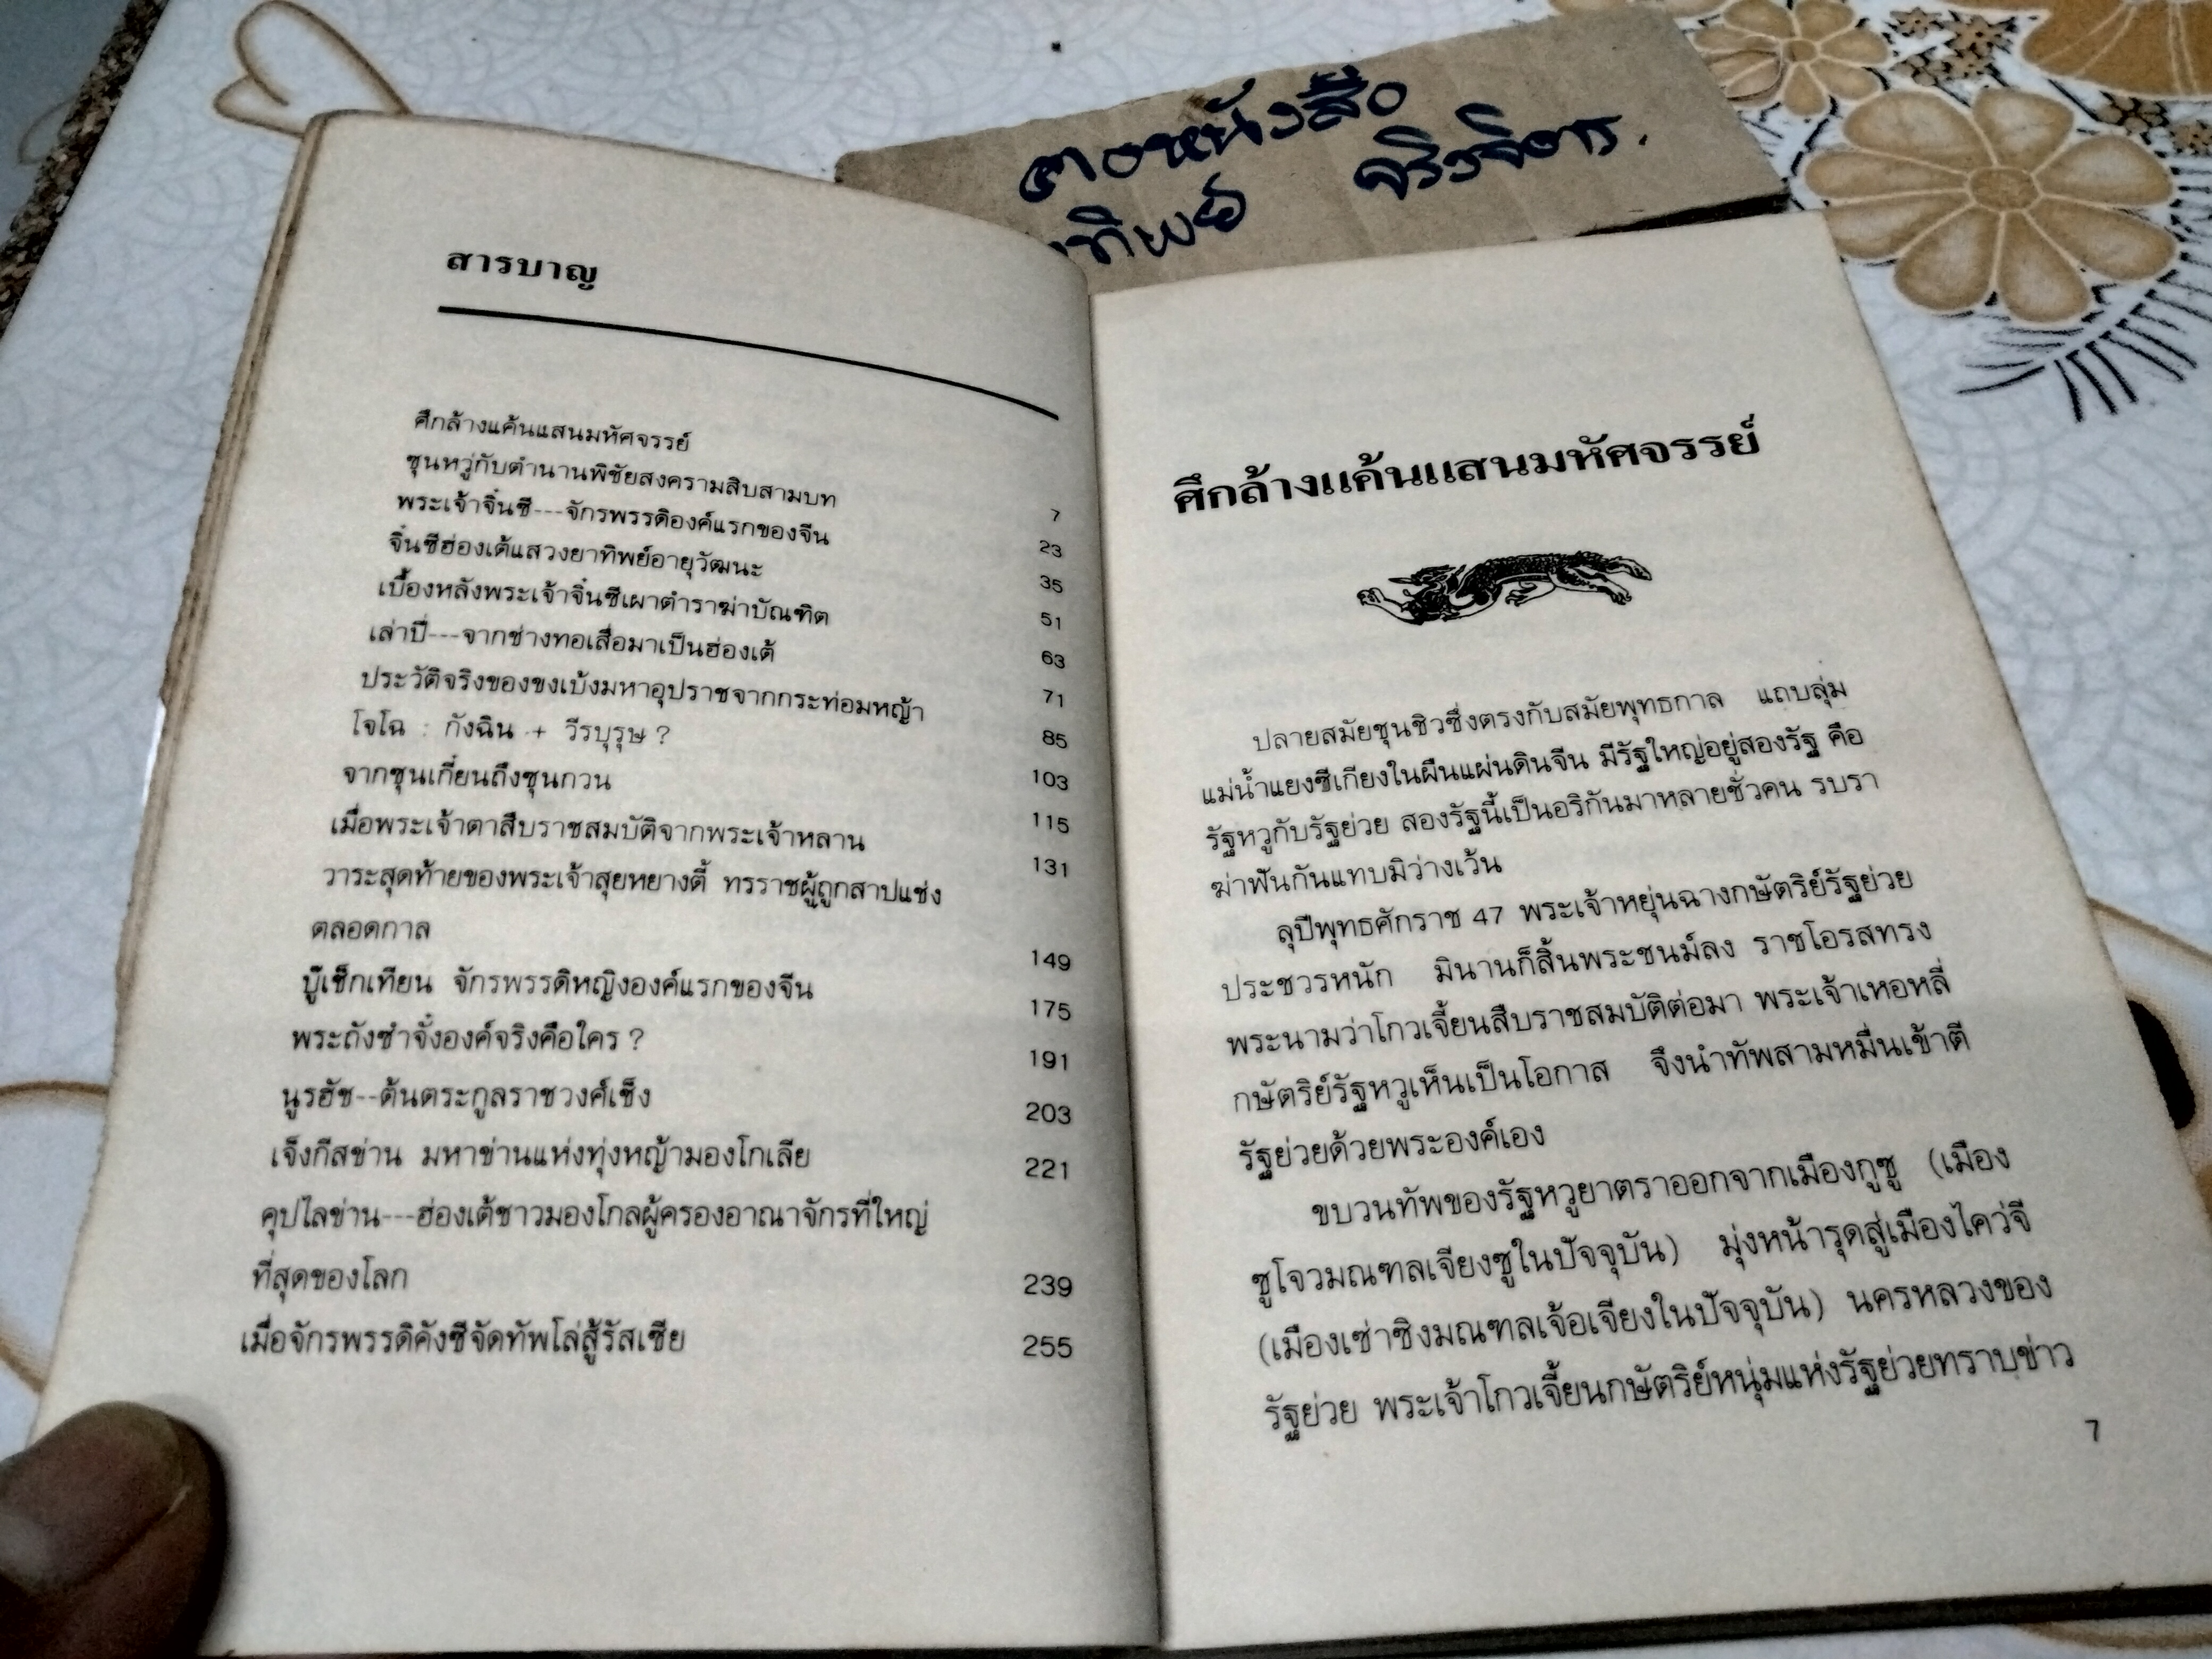 ฅอหนังสือ
ทิพย์ จริงจิตร.
สารบาญ
ศึกล้างแค้นแสนมหัศจรรย์ 7
ซุนหวู่กับตำนานพิชัยสงครามสิบสามบท 23
พระเจ้าจิ๋นซี---จักรพรรดิองค์แรกของจีน 35
จิ๋นซีฮ่องเต้แสวงยาทิพย์อายุวัฒนะ 51
เบื้องหลังพระเจ้าจิ๋นซีเผาตำราฆ่าบัณฑิต 63
เล่าปี่---จากช่างทอเสื่อมาเป็นฮ่องเต้ 71
ประวัติจริงของขงเบ้งมหาอุปราชจากกระท่อมหญ้า 85
โจโฉ : กังฉิน + วีรบุรุษ ? 103
จากซุนเกี๋ยนถึงซุนกวน 115
เมื่อพระเจ้าตาสืบราชสมบัติจากพระเจ้าหลาน 131
วาระสุดท้ายของพระเจ้าสุยหยางตี้ ทรราชผู้ถูกสาปแช่ง
ตลอดกาล 149
บู๊เช็กเทียน จักรพรรดิหญิงองค์แรกของจีน 175
พระถังซำจั๋งองค์จริงคือใคร ? 191
นูรฮัช--ต้นตระกูลราชวงศ์เช็ง 203
เจ็งกีสข่าน มหาข่านแห่งทุ่งหญ้ามองโกเลีย 221
คุปไลข่าน---ฮ่องเต้ชาวมองโกลผู้ครองอาณาจักรที่ใหญ่
ที่สุดของโลก 239
เมื่อจักรพรรดิคังซีจัดทัพโล่สู้รัสเซีย 255
ศึกล้างแค้นแสนมหัศจรรย์
ปลายสมัยชุนชิวซึ่งตรงกับสมัยพุทธกาล แถบลุ่ม
แม่น้ำแยงซีเกียงในผืนแผ่นดินจีน มีรัฐใหญ่อยู่สองรัฐ คือ
รัฐหวูกับรัฐย่วย สองรัฐนี้เป็นอริกันมาหลายชั่วคน รบรา
ฆ่าฟันกันแทบมิว่างเว้น
ลุปีพุทธศักราช 47 พระเจ้าหยุ่นฉางกษัตริย์รัฐย่วย
ประชวรหนัก มินานก็สิ้นพระชนม์ลง ราชโอรสทรง
พระนามว่าโกวเจี้ยนสืบราชสมบัติต่อมา พระเจ้าเหอหลี่
กษัตริย์รัฐหวูเห็นเป็นโอกาส จึงนำทัพสามหมื่นเข้าตี
รัฐย่วยด้วยพระองค์เอง
ขบวนทัพของรัฐหวูยาตราออกจากเมืองกูซู (เมือง
ซูโจวมณฑลเจียงซูในปัจจุบัน) มุ่งหน้ารุดสู่เมืองไคว่จี
(เมืองเซ่าซิงมณฑลเจ้อเจียงในปัจจุบัน) นครหลวงของ
รัฐย่วย พระเจ้าโกวเจี้ยนกษัตริย์หนุ่มแห่งรัฐย่วยทราบข่าว
7